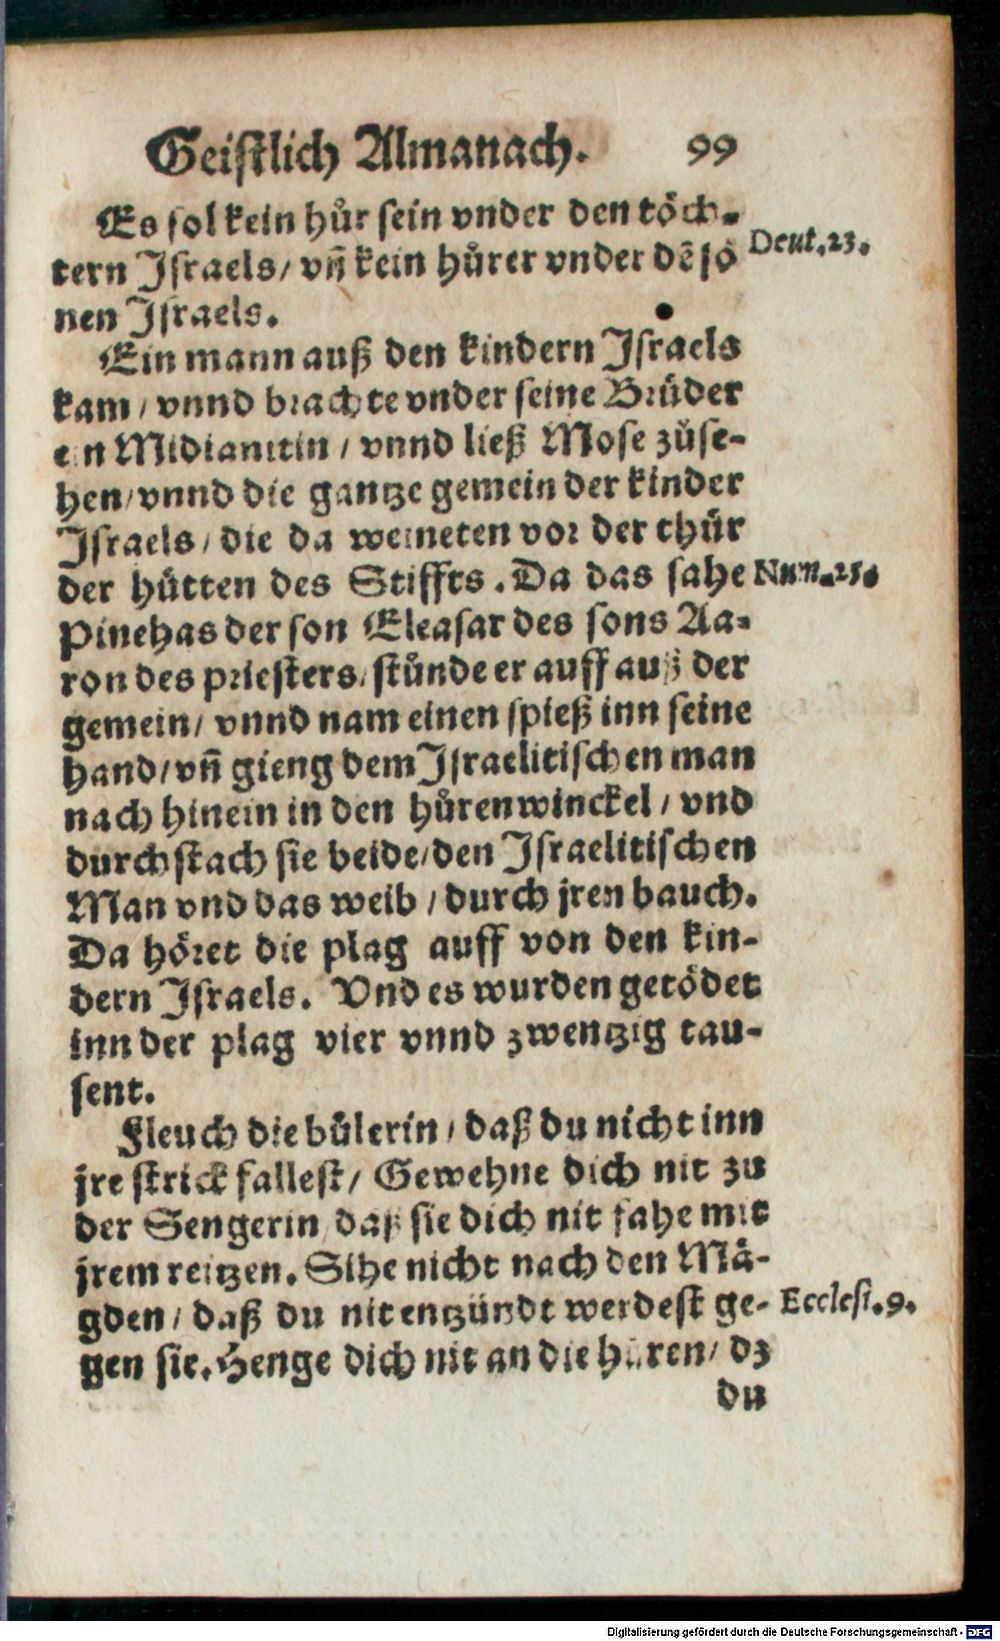 Geistlich Almanach. 99
Es sol kein hůr sein vnder den töch-
tern Israels/ vñ kein hůrer vnder dẽ sö
nen Israels.
Deut. 23.
Ein mann auß den kindern Israels
kam/ vnnd brachte vnder seine Brüder
ein Midianitin/ vnnd ließ Mose zůse-
hen/ vnnd die gantze gemein der kinder
Israels/ die da weineten vor der thür
der hütten des Stiffts. Da das sahe
Num. 25.
Pinehas der son Eleasar des sons Aa-
ron des priesters/ stůnde er auff auß der
gemein/ vnnd nam einen spieß inn seine
hand/ vñ gieng dem Israelitischen man
nach hinein in den hůrenwinckel/ vnd
durchstach sie beide/ den Israelitischen
Man vnd das weib/ durch jren bauch.
Da höret die plag auff von den kin-
dern Israels. Vnd es wurden getödet
inn der plag vier vnnd zwentzig tau-
sent.
Fleuch die bůlerin/ daß du nicht inn
jre strick fallest/ Gewehne dich nit zu
der Sengerin/ daß sie dich nit fahe mit
jrem reitzen. Sihe nicht nach den Mä-
gden/ daß du nit entzündt werdest ge-
Ecclesi. 9.
gen sie. Henge dich nit an die hůren/ dz
du
Digitalisierung gefördert durch die Deutsche Forschungsgemeinschaft - DFG